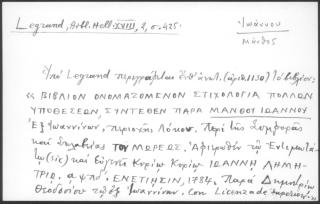 Legrand, Bibl. Hell. XVIII, 2, σ. 425.
Ἰωάννου
Μάνθος
Ὑπό Legrand περιγράφεται ὑπ' ἀριθ. (ἀριθ. 1130) τό βιβλίον:
« ΒΙΒΛΙΟΝ ΟΝΟΜΑΖΟΜΕΝΟΝ ΣΤΙΧΟΛΟΓΙΑ ΠΟΛΛΩΝ
ΥΠΟΘΕΣΕΩΝ, ΣΥΝΤΕΘΕΝ ΠΑΡΑ ΜΑΝΘΟΥ ΙΩΑΝΝΟΥ
Ἐξ Ἰωαννίνων, περιοχῆς Λάκου. Περί τῆς Συμφορᾶς
καί Σκλαβίας τοῦ ΜΩΡΕΩΣ. Ἀφιερωθέν τῷ Ἐντιμοτά-
τῳ (sic) καί Εὐγενεῖ Κυρίῳ Κυρίῳ ΙΩΑΝΝΗ ΔΗΜΗ-
ΤΡΙΟΥ, αψπδ'. ΕΝΕΤΙΗΣΙΝ, 1784. Παρά Δημητρίῳ
Θεοδοσίου τῷ ἐξ Ἰωαννίνων. Con Licenza de' Superiori. »